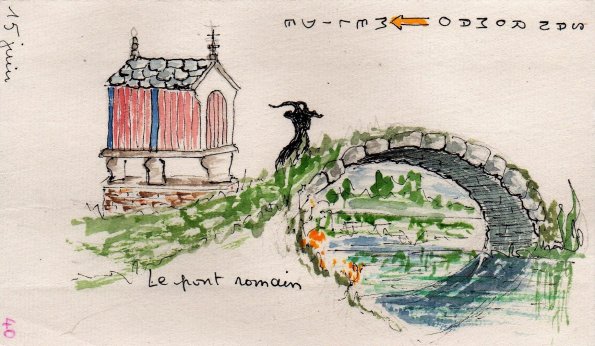 15 juin
SAN ROMAO → MELIDE
Le pont romain
40